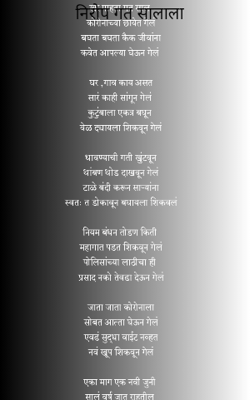 निरोप गत सालाला
कोरोनाच्या छायेत गेलं
बघता बघता कैक जीवांना
कवेत आपल्या घेऊन गेलं
घर ,गाव काय असत
सारं काही सांगून गेलं
कुटुंबाला एकत्र बघून
वेळ द्यायला शिकवून गेलं
धावण्याची गती खुंटवून
थांबण थोड दाखवून गेलं
टाळे बंदी करून साऱ्यांना
स्वतः त डोकावून बघायला शिकवलं
नियम बंधन तोडण किती
महागात पडत शिकवून गेलं
पोलिसांच्या लाठीचा ही
प्रसाद नको तेवढा देऊन गेलं
जाता जाता कोरोनाला
सोबत आत्ता घेऊन गेलं
एवढं सुद्धा वाईट नव्हत
नवं खूप शिकवून गेलं
एका माग एक नवी जुनी
सालं वर्ष जात राहतील